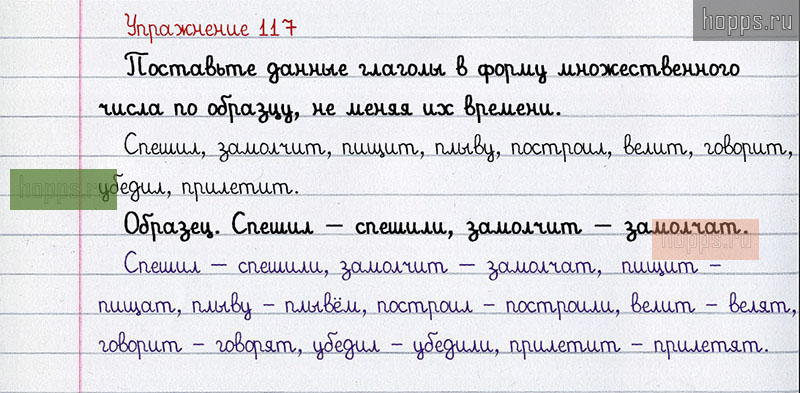 hopps.ru
Упражнение 117
Поставьте данные глаголы в форму множественного
числа по образцу, не меняя их времени.
Спешил, замолчит, пищит, плыву, построил, велит, говорит,
hopps.ru
убедил, прилетит.
Образец. Спешил – спешили, замолчит – замолчат.
hopps.ru
Спешил – спешили, замолчит – замолчат, пищит –
пищат, плыву – плывём, построил – построили, велит – велят,
говорит – говорят, убедил – убедили, прилетит – прилетят.